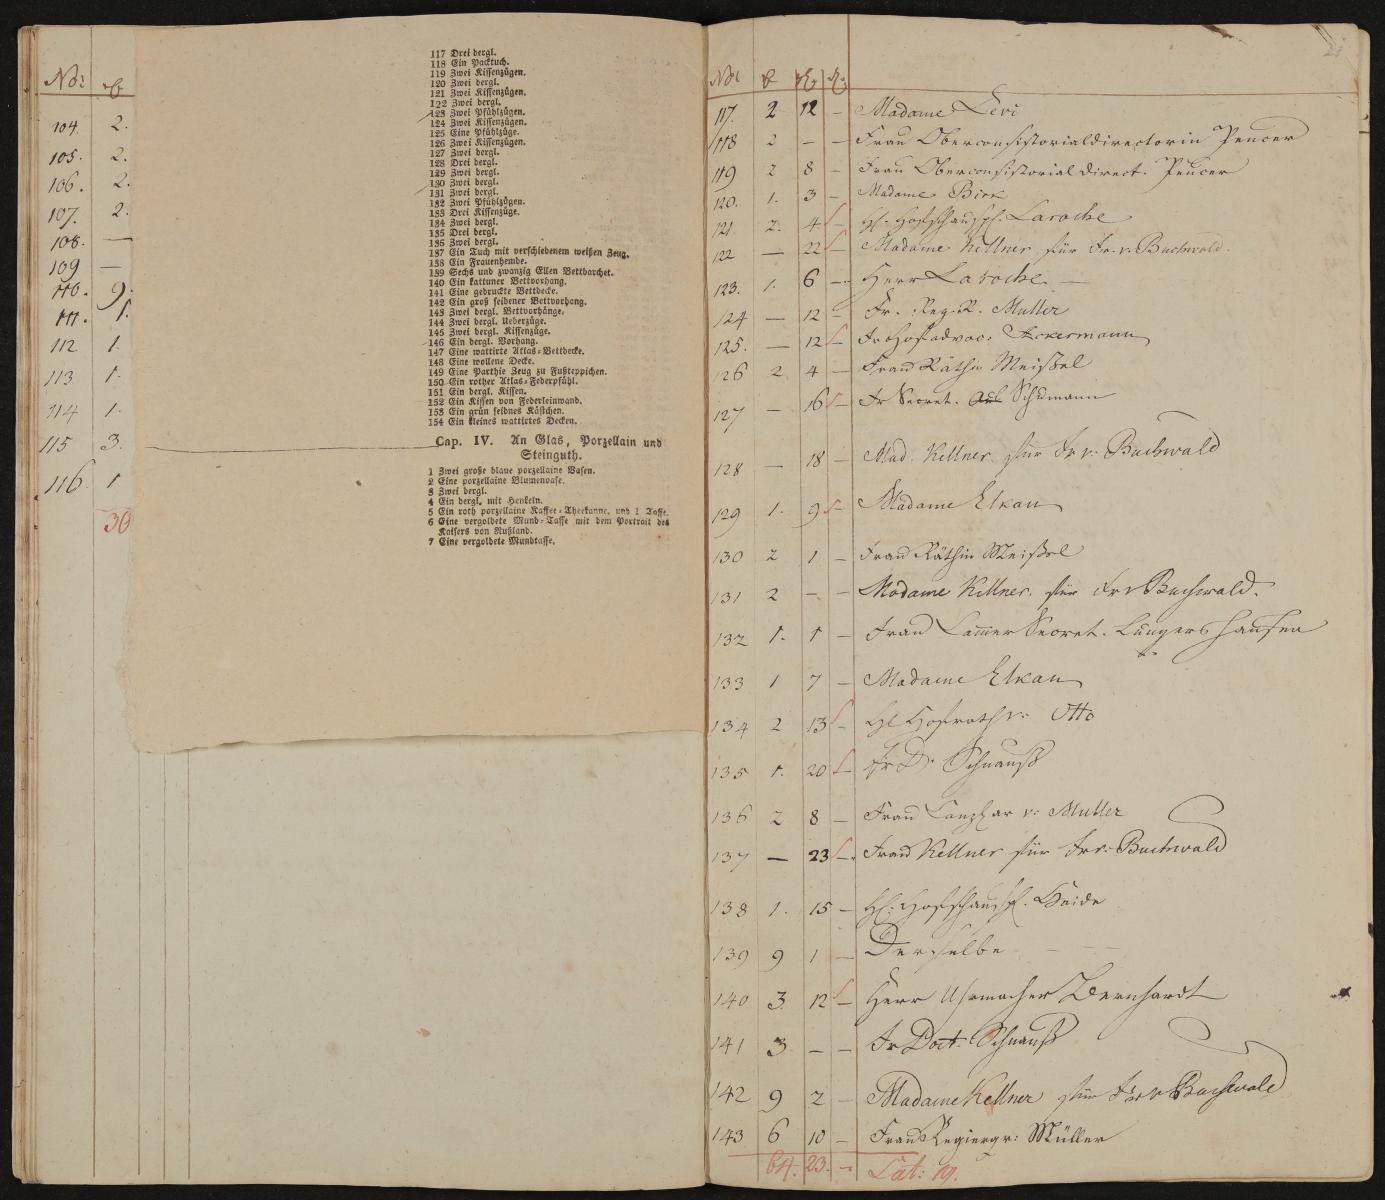 No:
104. 2.
105. 2.
106. 2.
107. 2.
108. —
109 —
110. 9.
111. 1.
112 1.
113 1.
114 1.
115 3.
116. 1
30
117 Drei dergl.
118 Ein Packtuch.
119 Zwei Kissenzügen.
120 Zwei dergl.
121 Zwei Kissenzügen.
122 Zwei dergl.
123 Zwei Pfühlzügen.
124 Zwei Kissenzügen.
125 Eine Pfühlzüge.
126 Zwei Kissenzügen.
127 Zwei dergl.
128 Drei dergl.
129 Zwei dergl.
130 Zwei dergl.
131 Zwei dergl.
132 Zwei Pfühlzügen.
133 Drei Kissenzüge.
134 Zwei dergl.
135 Drei dergl.
136 Zwei dergl.
137 Ein Tuch mit verschiedenem weißen Zeug.
138 Ein Frauenhemde.
139 Sechs und zwanzig Ellen Bettbarchet.
140 Ein kattuner Bettvorhang.
141 Eine gedruckte Bettdecke.
142 Ein groß seidener Bettvorhang.
143 Zwei dergl. Bettvorhänge.
144 Zwei dergl. Ueberzüge.
145 Zwei dergl. Kissenzüge.
146 Ein dergl. Vorhang.
147 Eine wattirte Atlas-Bettdecke.
148 Eine wollene Decke.
149 Eine Parthie Zeug zu Fußteppichen.
150 Ein rother Atlas-Federpfühl.
151 Ein dergl. Kissen.
152 Ein Kissen von Federleinwand.
153 Ein grün seidnes Kästchen.
154 Ein kleines wattirtes Decken.
Cap. IV. An Glas, Porzellain und
Steinguth.
1 Zwei große blaue porzellaine Vasen.
2 Eine porzellaine Blumenvase.
3 Zwei dergl.
4 Ein dergl. mit Henkeln.
5 Ein roth porzellaine Kaffee-Theekanne, und 1 Tasse.
6 Eine vergoldete Mund-Tasse mit dem Portrait des
Kaisers von Rußland.
7 Eine vergoldete Mundtasse.
No:
117. 2 12 — Madame Levi
118 2 — — Frau Oberconsistorialdirectorin Peucer
119 2 8 — Frau Oberconsistorialdirect. Peucer
120. 1. 3 — Madame Birk
121. 2. 4 — Hr. Hofschausp. Laroche
122 — 22 — Madame Kellner für Fr. v. Buchwald.
123. 1. 6 — Herr Laroche —
124 — 12 — Fr. Reg. R. Müller
125. — 12 — Fr Hofadvoc: Ackermann
126 2 4 — Frau Räthin Meißel
127 — 16 — Fr Secret. Schumann
128 — 18 — Mad. Kellner für Fr v: Buchwald
129 1. 9 — Madame Elkan
130 2 1 — Frau Räthin Meißel
131 2 — — Madame Kellner. für Fr v Buchwald.
132 1. 1 — Frau CammerSecret. Lungershausen
133 1 7 — Madame Elkan
134 2 13 — Hr Hofrath v: Otto
135 1. 20 — Fr D. Schnauß
136 2 8 — Frau Canzlar v: Müller
137 — 23 — Frau Kellner für Fr v: Buchwald
138 1. 15 — Hr: Hofschausp. Haide
139 9 1 — Derselbe — —
140 3 12 — Herr Uhrmacher Bernhardt
141 3 — — Fr Doct: Schnauß
142 9 2 — Madame Kellner für Fr v Buchwald
143 6 10 — Frau Regiergr: Müller
64. 23. — Lat: 19.